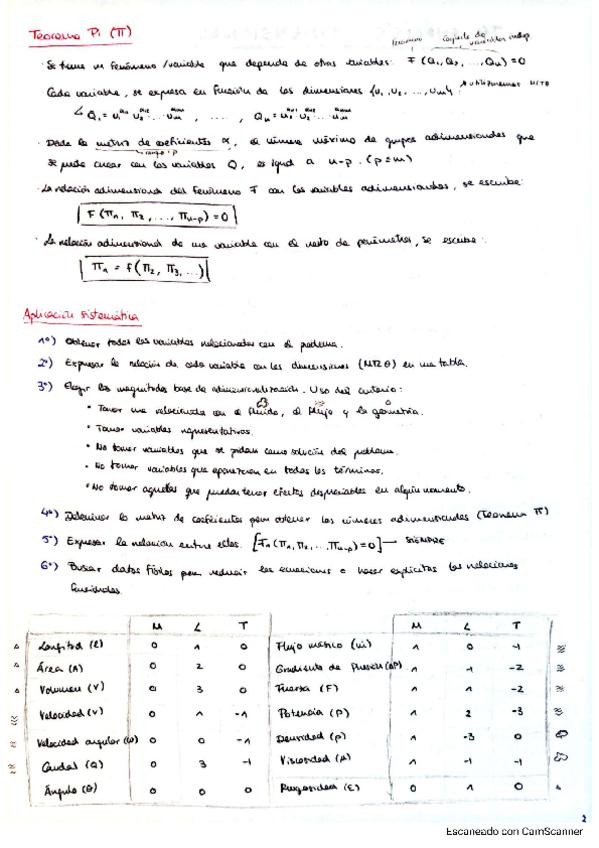 Teorema Pi (Π)
fenómeno conjunto de variables indep
· Se tiene un fenómeno/variable que depende de otras variables: F (Q₁, Q₂, ..., Qn) = 0
Cada variable, se expresa en función de las dimensiones {u₁, u₂, ..., um}
· Dada la matriz de coeficientes α, el número máximo de grupos adimensionales que
rango: p
se puede crear con las variables Q, es igual a n-p. (p=m)
· La relación adimensional del fenómeno F con las variables adimensionales, se escribe:
F (Π₁, Π₂, ..., Πn-p) = 0
· La relación adimensional de una variable con el resto de parámetros, se escribe:
Π₁ = f(Π₂, Π₃, ...)
Aplicación sistemática
1º) Obtener todas las variables relacionadas con el problema.
2º) Expresar la relación de cada variable con las dimensiones (MLTθ) en una tabla.
3º) Elegir las magnitudes base de adimensionalización. Uso del criterio:
• Tomar una relacionada con el fluido, el flujo y la geometría.
• Tomar variables representativas.
• No tomar variables que se pidan como solución del problema.
• No tomar variables que aparezcan en todos los términos.
• No tomar aquellas que puedan tener efectos despreciables en algún momento.
4º) Determinar la matriz de coeficientes para obtener los números adimensionales (Teorema Π)
5º) Expresar la relación entre ellos. [Fn(Π₁, Π₂, ..., Πn-p) = 0] → SIEMPRE
6º) Buscar datos físicos para reducir las ecuaciones o hacer explícitas las relaciones
funcionales.
M L T M L T
Longitud (L) 0 1 0 Flujo másico (ṁ) 1 0 -1
Área (A) 0 2 0 Gradiente de Presión (ΔP) 1 -1 -2
Volumen (V) 0 3 0 Fuerza (F) 1 1 -2
Velocidad (v) 0 1 -1 Potencia (P) 1 2 -3
Velocidad angular (ω) 0 0 -1 Densidad (ρ) 1 -3 0
Caudal (Q) 0 3 -1 Viscosidad (μ) 1 -1 -1
Ángulo (θ) 0 0 0 Rugosidad (ε) 0 1 0
2
Escaneado con CamScanner